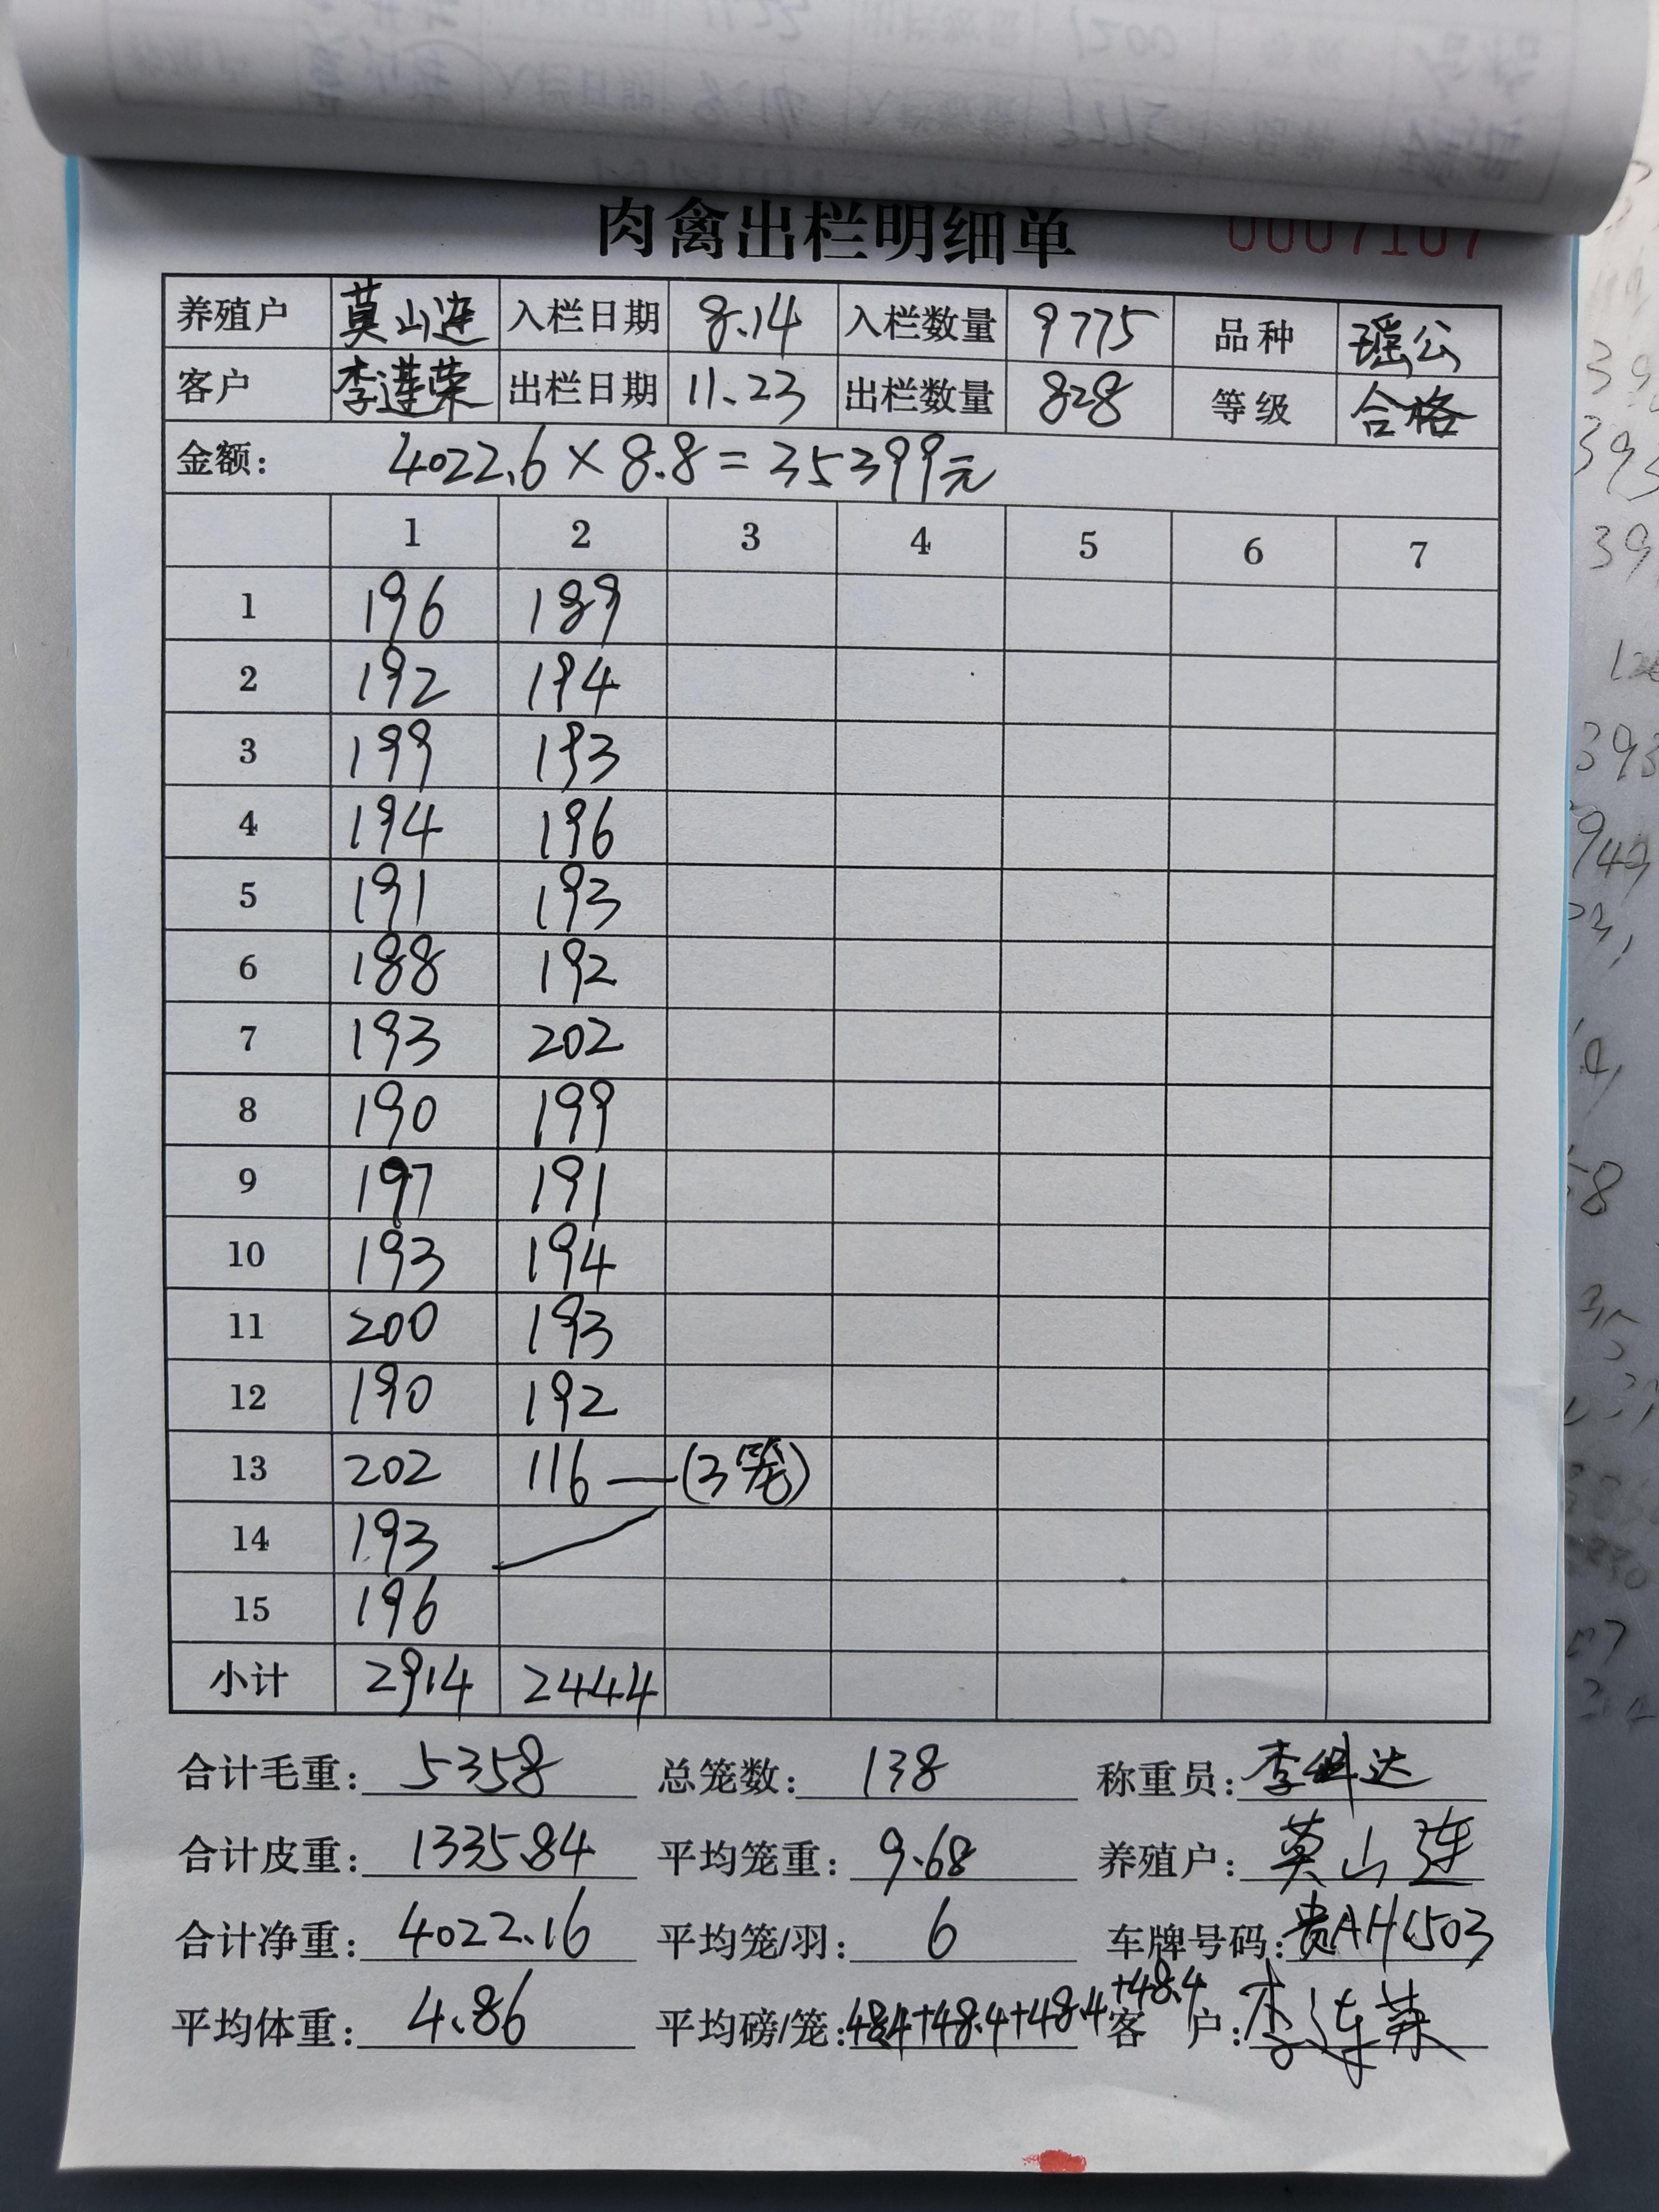 肉禽出栏明细单 0007107
养殖户 莫山连 入栏日期 8.14 入栏数量 9775 品种 瑶公
客户 李莲荣 出栏日期 11.23 出栏数量 828 等级 合格
金额: 4022.6×8.8=35399元
1 2 3 4 5 6 7
1 196 189
2 192 194
3 199 193
4 194 196
5 191 193
6 188 192
7 193 202
8 190 199
9 197 191
10 193 194
11 200 193
12 190 192
13 202 116 —(3笼)
14 193
15 196
小计 2914 2444
合计毛重: 5358 总笼数: 138 称重员: 李 达
合计皮重: 1335.84 平均笼重: 9.68 养殖户: 莫山连
合计净重: 4022.16 平均笼/羽: 6 车牌号码: 贵AH1503
平均体重: 4.86 平均磅/笼: 48.4+48.4+48.4+48.4 客户: 李连荣